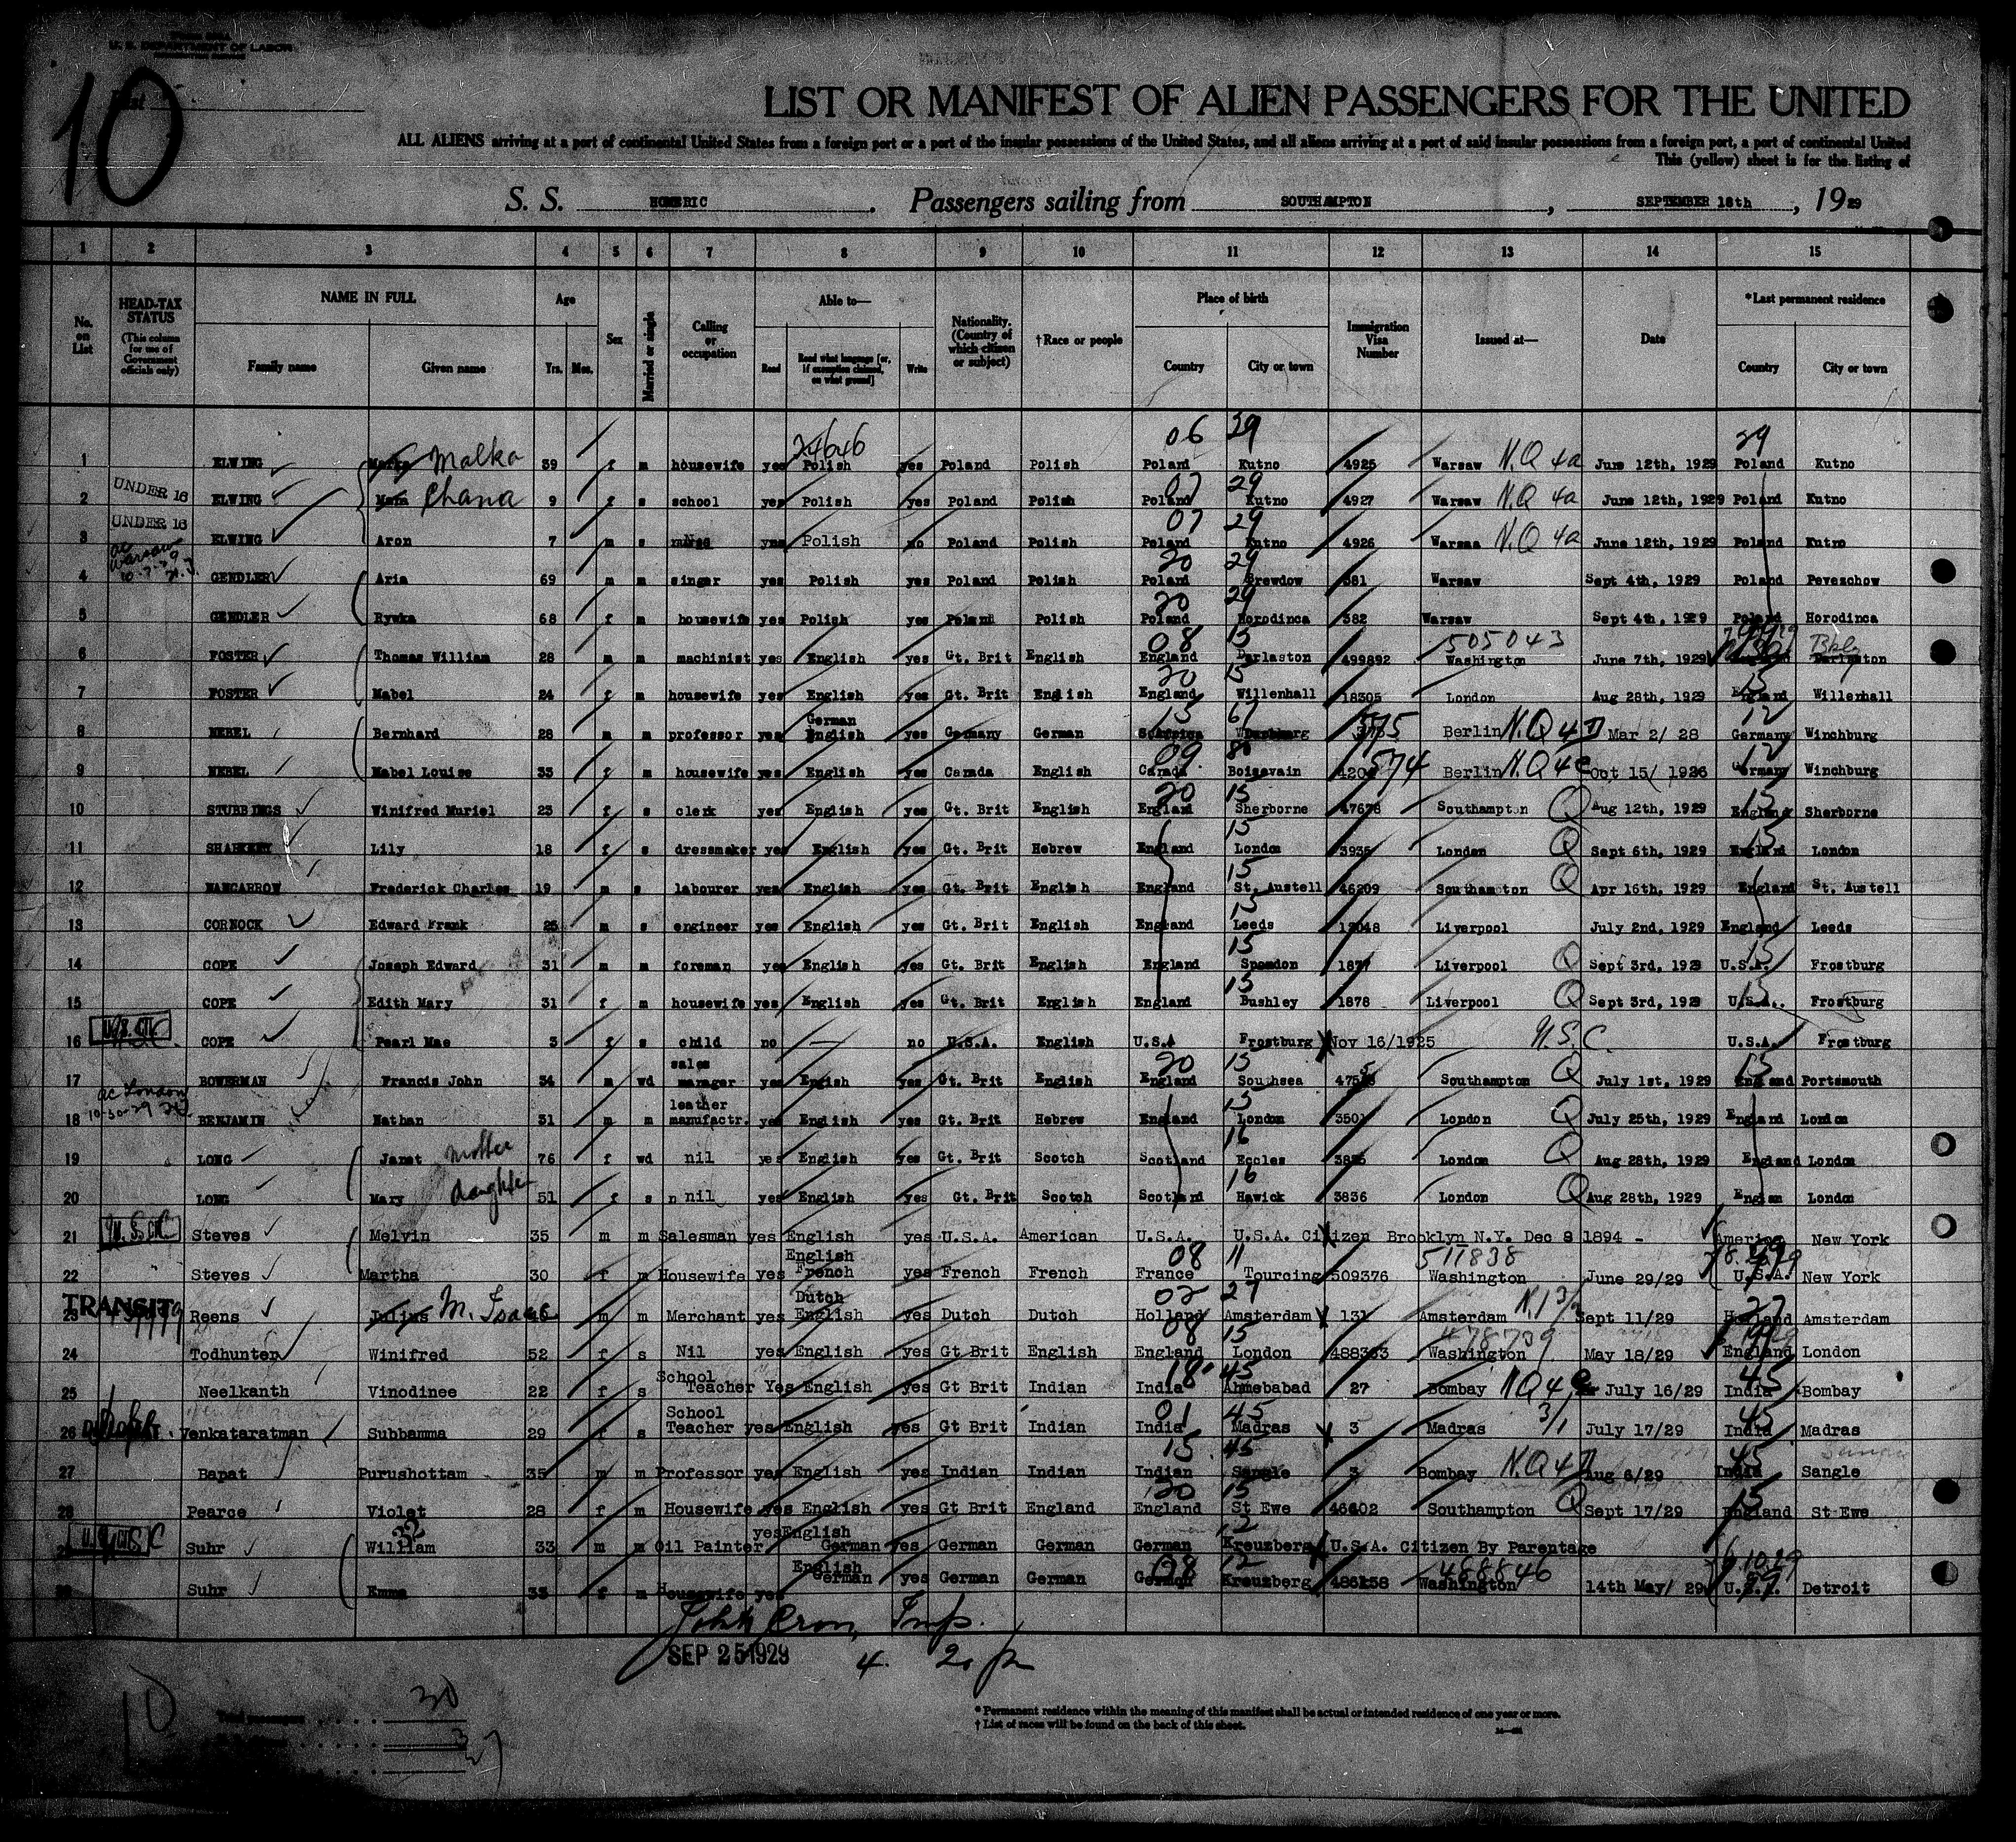 U. S. DEPARTMENT OF LABOR
10
LIST OR MANIFEST OF ALIEN PASSENGERS FOR THE UNITED
ALL ALIENS arriving at a port of continental United States from a foreign port or a part of the insular possessions of the United States, and all aliens arriving at a port of said insular possessions from a foreign port, a part of continental United
This (yellow) sheet is for the listing of
S. S. HOMERIC Passengers sailing from SOUTHAMPTON, SEPTEMBER 18th, 1929
1 2 3 4 5 6 7 8 9 10 11 12 13 14 15
No. on List
HEAD-TAX STATUS (This column for use of Government officials only)
NAME IN FULL
Family name Given name
Age Yrs. Mos.
Sex
Married or single
Calling or occupation
Able to—
Read Read what language [or, if exemption claimed, on what ground] Write
Nationality. (Country of which citizen or subject)
†Race or people
Place of birth
Country City or town
Immigration Visa Number
Issued at—
Date
*Last permanent residence
Country City or town
24646 06 29 29
1 ELWING Malka 39 f m housewife yes Polish yes Poland Polish Poland Kutno 4925 Warsaw N.Q 4a June 12th, 1929 Poland Kutno
07 29
2 UNDER 16 ELWING Chana 9 f s school yes Polish yes Poland Polish Poland Kutno 4927 Warsaw N.Q 4a June 12th, 1929 Poland Kutno
07 29
3 UNDER 16 ELWING Aron 7 m s Polish no Poland Polish Poland Kutno 4926 Warsaw N.Q 4a June 12th, 1929 Poland Kutno
20 29
4 GENDLER Aria 69 m m singer yes Polish yes Poland Polish Poland Brewdow 381 Warsaw Sept 4th, 1929 Poland Peveschow
20 29
5 GENDLER Rywka 68 f m housewife yes Polish yes Poland Polish Poland Horodinca 382 Warsaw Sept 4th, 1929 Poland Horodinca
08 15 505043
6 FOSTER Thomas William 28 m m machinist yes English yes Gt. Brit English England Darlaston 499892 Washington June 7th, 1929
20 15 15
7 FOSTER Mabel 24 f m housewife yes English yes Gt. Brit English England Willenhall 18305 London Aug 28th, 1929 England Willenhall
German 15 61 12
8 NEBEL Bernhard 28 m m professor yes English yes Germany German S. Africa 375 Berlin N.Q 4D Mar 2/ 28 Germany Winchburg
09 12
9 NEBEL Mabel Louise 33 f m housewife yes English yes Canada English Canada Boissvain 574 Berlin N.Q 4c Oct 15/ 1926 Germany Winchburg
20 15 15
10 STUBBINGS Winifred Muriel 23 f s clerk yes English yes Gt. Brit English England Sherborne 47678 Southampton Q Aug 12th, 1929 England Sherborne
15 15
11 Lily 18 f s dressmaker yes English yes Gt. Brit Hebrew England London 3935 London Q Sept 6th, 1929 England London
15
12 NANCARROW Frederick Charles 19 m s labourer yes English yes Gt. Brit English England St. Austell 46209 Southamton Q Apr 16th, 1929 England St. Austell
15
13 CORNOCK Edward Frank 25 m s engineer yes English yes Gt. Brit English England Leeds 12048 Liverpool July 2nd, 1929 England Leeds
15 15
14 COPE Joseph Edward 31 m m foreman yes English yes Gt. Brit English England Spondon 1877 Liverpool Q Sept 3rd, 1929 U.S.A. Frostburg
15 15
15 COPE Edith Mary 31 f m housewife yes English yes Gt. Brit English England Bushley 1878 Liverpool Q Sept 3rd, 1929 U.S.A. Frostburg
16 COPE Pearl Mae 3 f s child no — no U.S.A. English U.S.A Frostburg Nov 16/1925 U.S.C. U.S.A. Frostburg
sales 20 15 15
17 BOWERMAN Francis John 34 m wd manager yes English yes Gt. Brit English England Southsea Southampton Q July 1st, 1929 England Portsmouth
ac London 10-30-29
leather 15
18 BENJAMIN Nathan 31 m m manufactr. yes English yes Gt. Brit Hebrew England London 3501 London Q July 25th, 1929 England London
16
19 LONG Janet Mother 76 f wd nil yes English yes Gt. Brit Scotch Scotland Eccles London Q Aug 28th, 1929 England London
16
20 LONG Mary daughter 51 f s n nil yes English yes Gt. Brit Scotch Scotland Hawick 3836 London Q Aug 28th, 1929 London
21 Steves Melvin 35 m m Salesman yes English yes U.S.A. American U.S.A. U.S.A. Citizen Brooklyn N.Y. Dec 8 1894 - America New York
English 08 11 511838
22 Steves Martha 30 f m Housewife yes French yes French French France Tourcing 509376 Washington June 29/29 U.S.A. New York
TRANSIT
Dutch 02 27 27
23 Reens Julius M. Isaac m m Merchant yes English yes Dutch Dutch Holland Amsterdam 131 Amsterdam Sept 11/29 Holland Amsterdam
08 15 478739
24 Todhunter Winifred 52 f s Nil yes English yes Gt Brit English England London 488363 Washington May 18/29 England London
School 18 45 45
25 Neelkanth Vinodinee 22 f s Teacher Yes English yes Gt Brit Indian India Ahmebabad 27 Bombay N.Q 4 July 16/29 India Bombay
School 01 45 3/1 45
26 Venkataratman Subbamma 29 f s Teacher yes English yes Gt Brit Indian India Madras 3 Madras July 17/29 India Madras
15 45 45
27 Bapat Purushottam 35 m m Professor yes English yes Indian Indian Indian Sangle 3 Bombay N.Q 4D Aug 6/29 India Sangle
20 15 15
28 Pearce Violet 28 f m Housewife yes English yes Gt Brit England England St Ewe 46602 Southampton Q Sept 17/29 England St Ewe
32 yes English 12
Suhr William 33 m m Oil Painter German yes German German German Kreuzberg U.S.A. Citizen By Parentage
English 08 12 488846
Suhr Emma 33 f m Housewife yes German yes German German German Kreuzberg 486158 Washington 14th May/ 29 U.S.A. Detroit
SEP 25 1929
10
30
* Permanent residence within the meaning of this manifest shall be actual or intended residence of one year or more.
† List of races will be found on the back of this sheet.